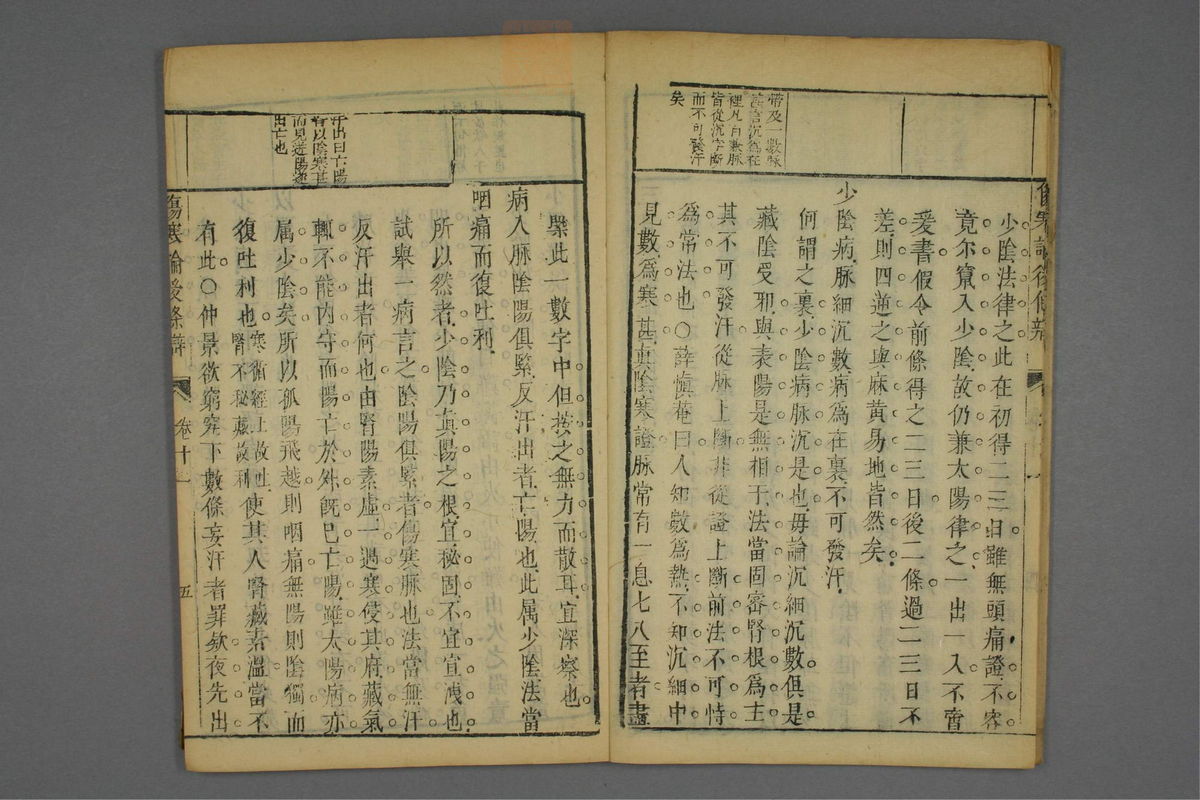 帶及一數脉
在言沉爲在
裡凡有數脉
皆從沉字斷
而不可發汗
矣
少陰法律之此在初得二三日雖無頭痛證不容
竟尔竄入少陰故仍兼太陽律之一出一入不啻
爰書假令前條得之二三日後二條過二三日不
差則四逆之與麻黃易地皆然矣
少陰病脉細沉數病爲在裏不可發汗
何謂之裏少陰病脉沉是也毋論沉細沉數俱是
藏陰受邪與表陽是無相干法當固密腎根爲主
其不可發汗從脉上斷非從證上斷前法不可恃
爲常法也〇薛愼菴曰人知數爲熱不知沉細中
見數爲寒甚眞陰寒證脉常有一息七八至者盡
汗出曰亡陽
者以陰寒甚
而見逆陽逆
出亡也
槩此一數字中但按之無力而散耳宜深察也
病人脉陰陽俱緊反汗出者亡陽也此属少陰法當
咽痛而復吐利
所以然者少陰乃眞陽之根宜秘固不宜宣洩也
試舉一病言之陰陽俱緊者傷寒脉也法當無汗
反汗出者何也由腎陽素虛一遇寒侵其府藏氣
輒不能内守而陽亡於外旣已亡陽雖太陽病亦
属少陰矣所以孤陽飛越則咽痛無陽則陰獨而
復吐利也寒循經上故吐腎不秘藏故利使其人腎藏素溫當不
有此〇仲景欲窮究下數條妄汗者罪欸夜先出
傷寒論後條辨 卷十一 五